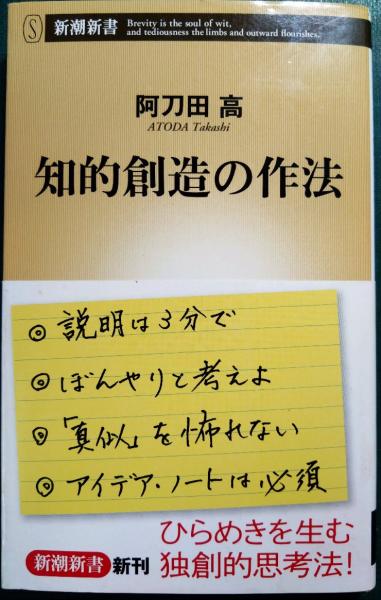 S 新潮新書
Brevity is the soul of wit,
and tediousness the limbs and outward flourishes.
阿刀田 高
ATODA Takashi
知的創造の作法
◎ 説明は3分で
◎ ぼんやりと考えよ
◎ 「真似」を怖れない
◎ アイデア・ノートは必須
ひらめきを生む
新潮新書 新刊 独創的思考法!